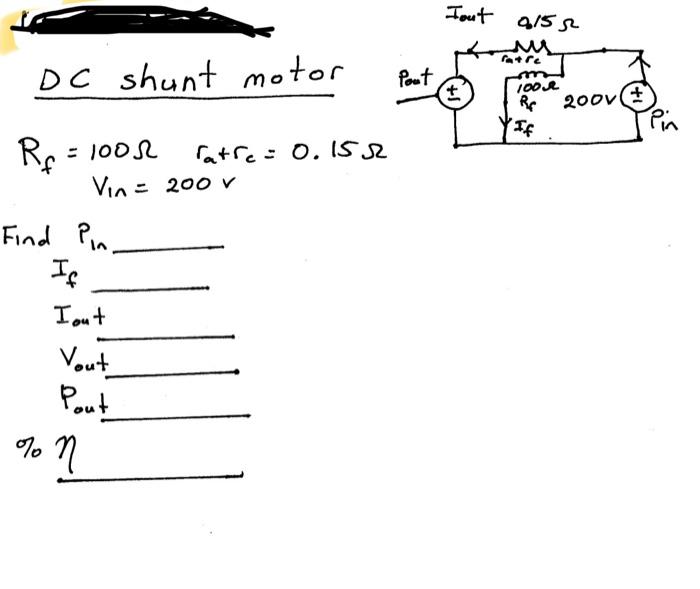 DC shunt motor
R_f = 100Ω r_a+r_c = 0.15Ω
V_in = 200 v
Find P_in
I_f
I_out
V_out
P_out
% η
I_out 0.15Ω
r_a+r_c
P_out
100Ω
R_f
200V
P_in
I_f